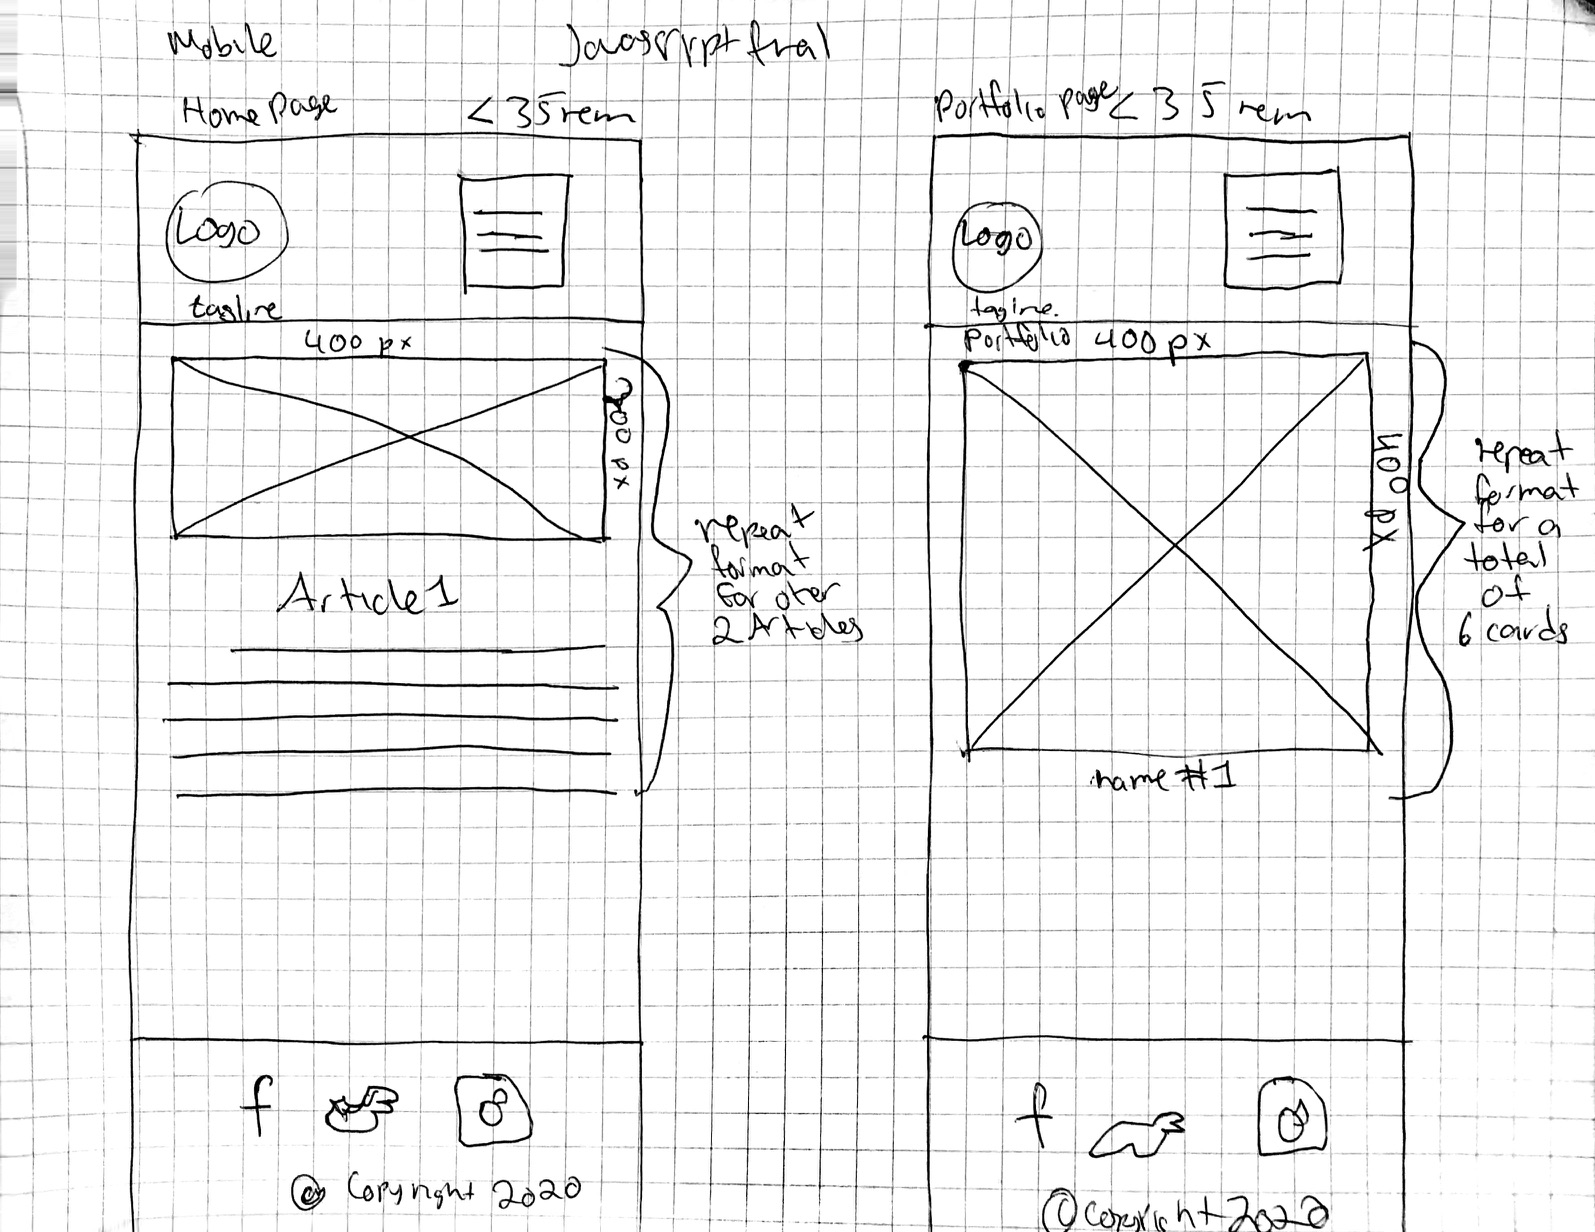 Mobile
Javascript final
Home Page < 35 rem
Logo
tagline
400 px
200 px
Article 1
repeat
format
for oter
2 Articles
f
© Copyright 2020
Portfolio page < 35 rem
Logo
tagline.
Portfolio 400 px
400 px
name #1
repeat
format
for a
total
of
6 cards
f
© Copyright 2020